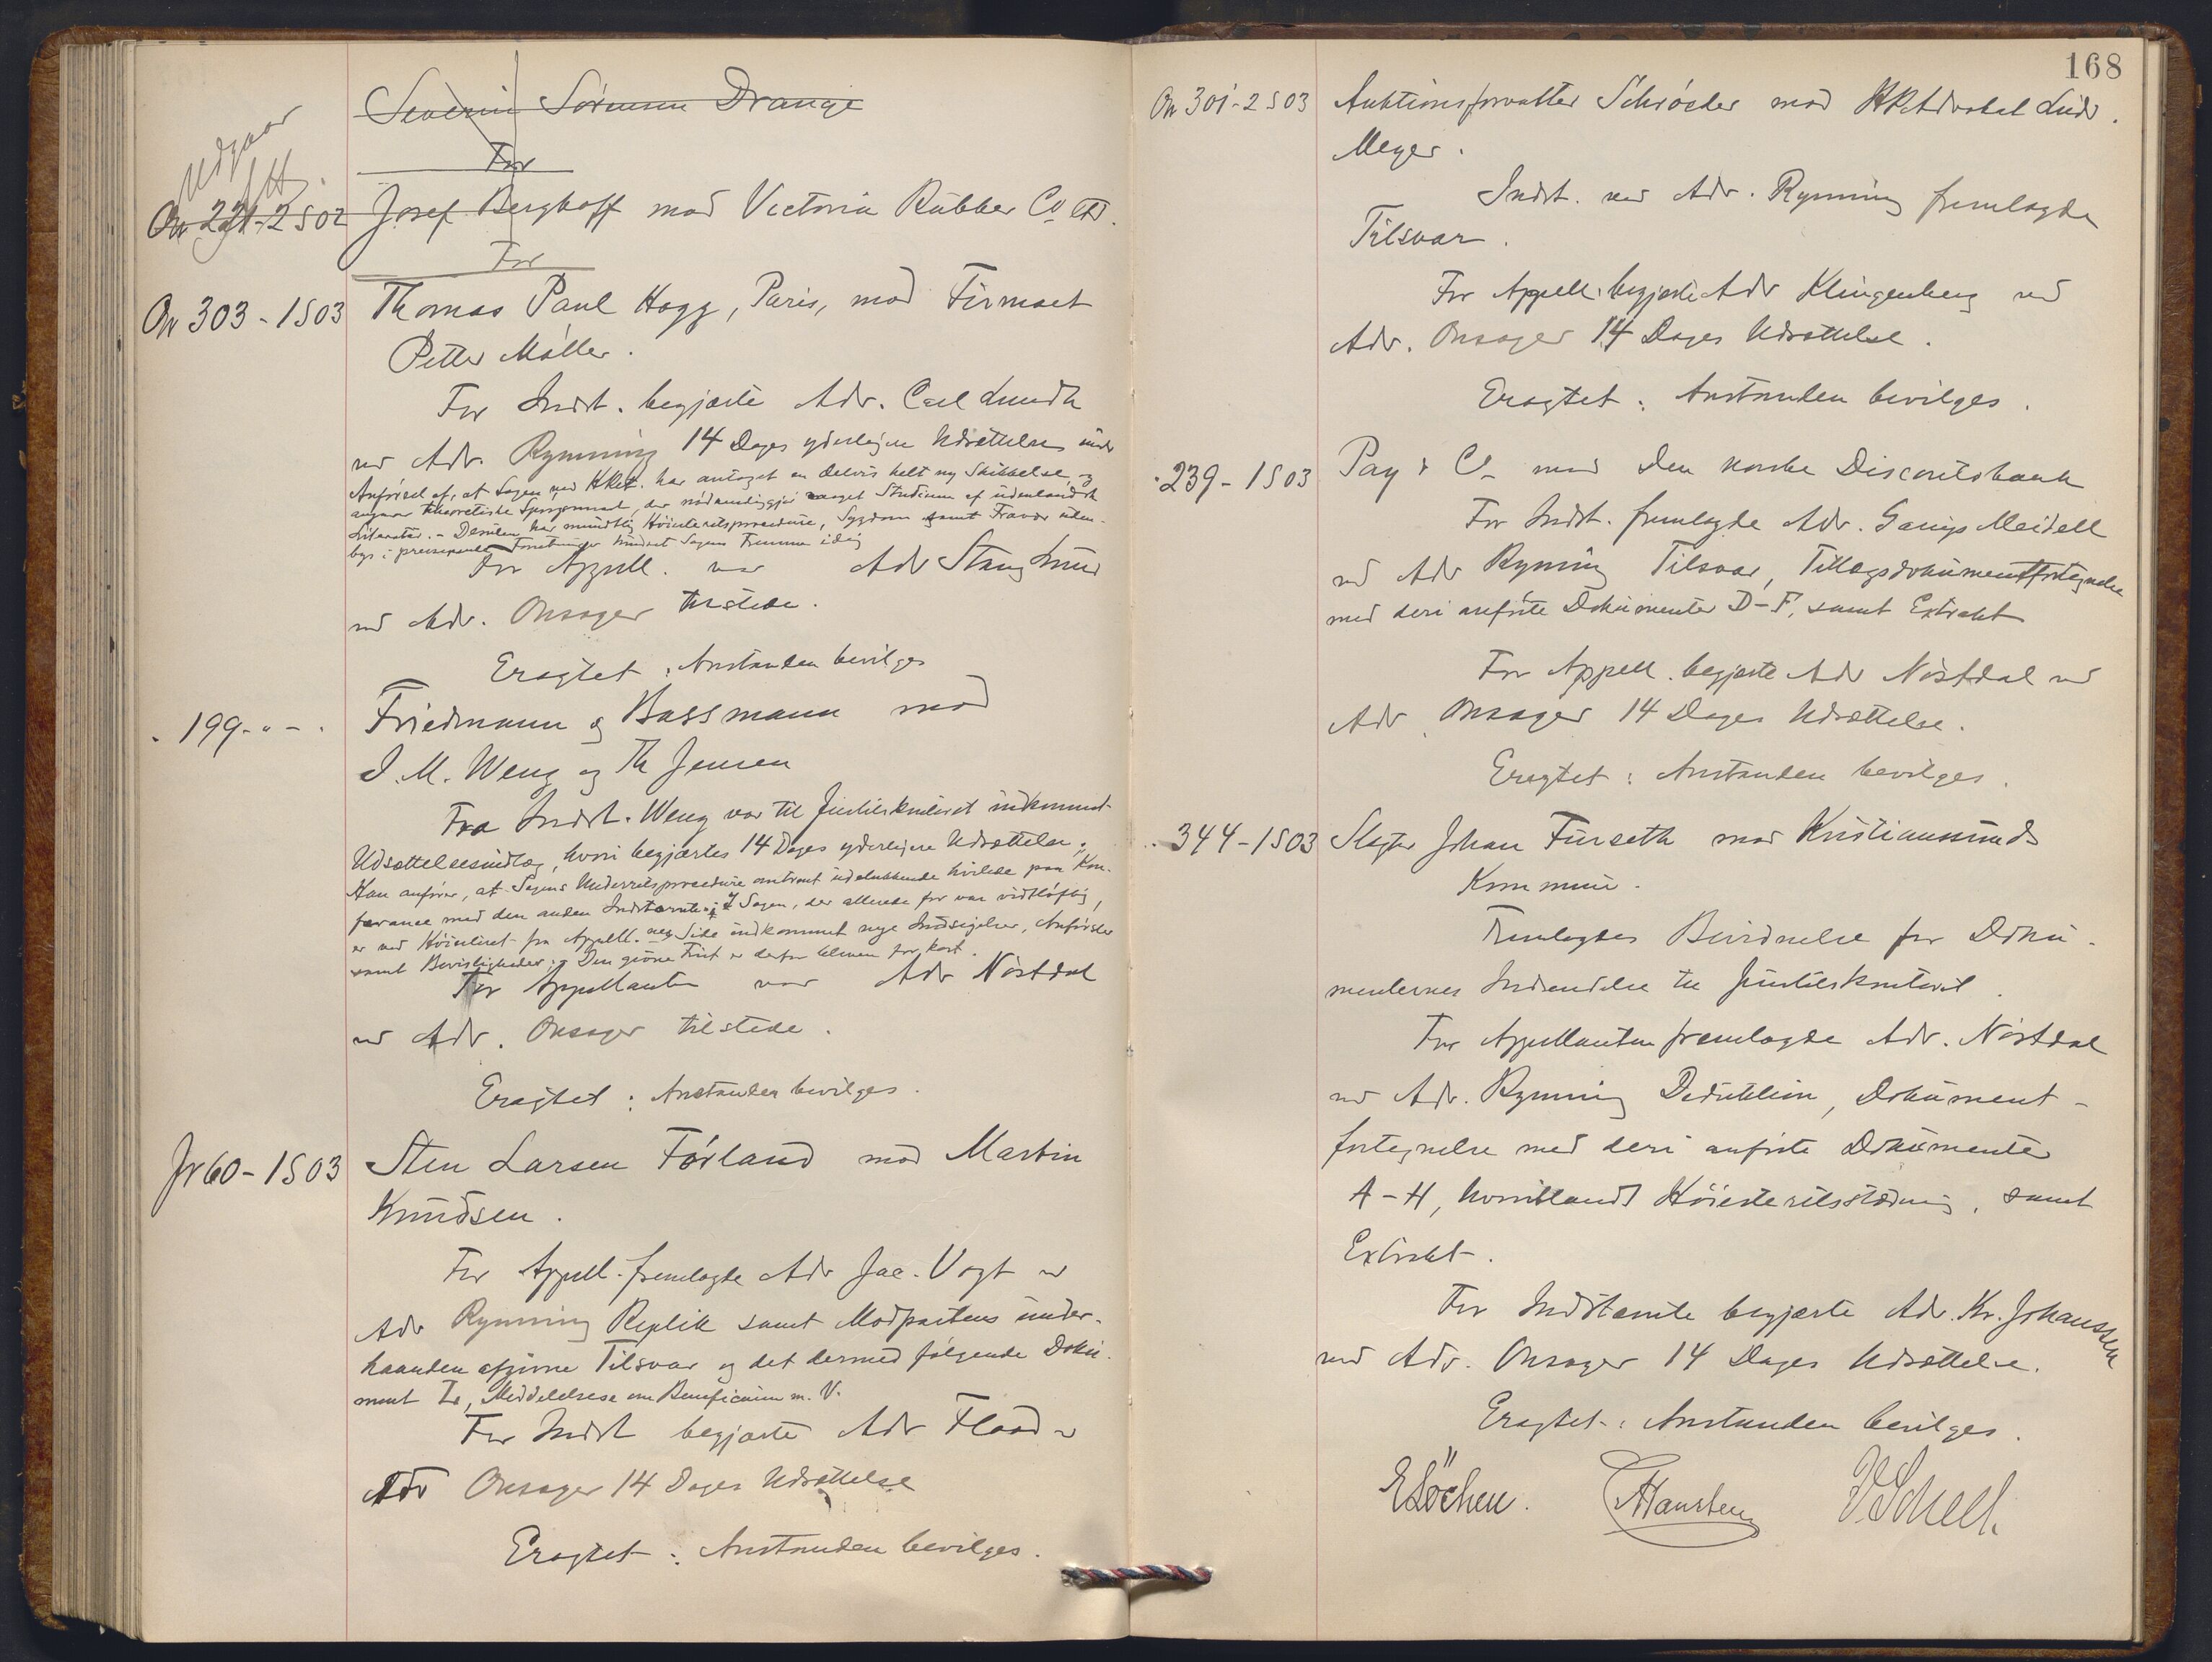 Severin Sörensen Drange
For
Udgaar
On 221-2 S 02 Josef Berghoff mod Victoria Rubber Co Ltd.
For
On 303-1 S 03 Thomas Paul Hogg, Paris, mod Firmaet
Petter Möller.
For Indst. begjærte Adv. Carl Lundh
ved Adv. Rynning 14 Dages yderligere Udsættelse under
Anförsel af, at Sagen ved HRet. har antaget en delvis helt ny Skikkelse, og
angaar theoretiske Spörgsmaal, der nödvendiggjör meget Studium af udenlandsk
Literatur. - Desuden har mundtlig Höiesteretsprocedure, Sygdom samt Fravær uden-
bys i presserende Forretninger hindret Sagens Fremme idag
For Appell. var Adv Stang Lund
ved Adv. Onsager tilstede.
Eragtet: Anstanden bevilges
" 199 - " - " Friedmann & Bassmann mod
I. M. Weng og Th Jensen
Fra Indst. Weng var til Justitskontoret indkommet
Udsættelsesindlæg, hvori begjærtes 14 Dages yderligere Udsættelse;
Han anförer, at Sagens Underretsprocedure omtrent udelukkende hvilede paa Kon-
ferance med den anden Indstevnte; I Sagen, der allerede för var vidtlöftig,
er ved Höiesteret fra Appell. Side indkommet nye Indsigelser, Anförsler
samt Bevisligheder; Den givne Frist er derfor bleven for kort.
For Appellanten var Adv Nöstdal
ved Adv. Onsager tilstede.
Eragtet: Anstanden bevilges.
Jr 60-1 S 03 Sten Larsen Förland mod Martin
Knudsen.
For Appell. fremlagde Adv Jac. Vogt v
Adv Rynning Replik samt Modpartens under-
haanden afgivne Tilsvar og det dermed fölgende Doku-
ment L, Meddelelse om Beneficium m. V.
For Indst begjærte Adv Flood v
Adv Onsager 14 Dages Udsættelse
Eragtet: Anstanden bevilges.
168
On 301-2 S 03 Auktionsforvalter Schröder mod HRAdvokat Ludv.
Meyer.
Indst. ved Adv. Rynning fremlagde
Tilsvar.
For Appell. begjærte Adv Klingenberg ved
Adv. Onsager 14 Dages Udsættelse.
Eragtet: Anstanden bevilges.
" 239-1 S 03 Pay & Co mod Den norske Discontobank
For Indst. fremlagde Adv. Meidell
ved Adv Rynning Tilsvar, Tillægsdokumentfortegnelse
med deri anförte Dokumenter D-F, samt Extrakt
For Appell. begjærte Adv Nöstdal ved
Adv. Onsager 14 Dages Udsættelse.
Eragtet: Anstanden bevilges.
" 344-1 S 03 Slagter Johan Furseth mod Kristianssunds
Kommune.
Fremlagdes Bevidnelse for Doku-
menternes Indsendelse til Justitskontoret.
For Appellanten fremlagde Adv. Nöstdal
ved Adv. Rynning Deduktion, Dokument-
fortegnelse med deri anförte Dokumenter
A-H, hvoriblandt Höiesteretsstævning, samt
Extrakt.
For Indstævnte begjærte Adv. Kr. Johanssen
ved Adv. Onsager 14 Dages Udsættelse.
Eragtet: Anstanden bevilges.
E Löchen. Hansteen V. Scheel.